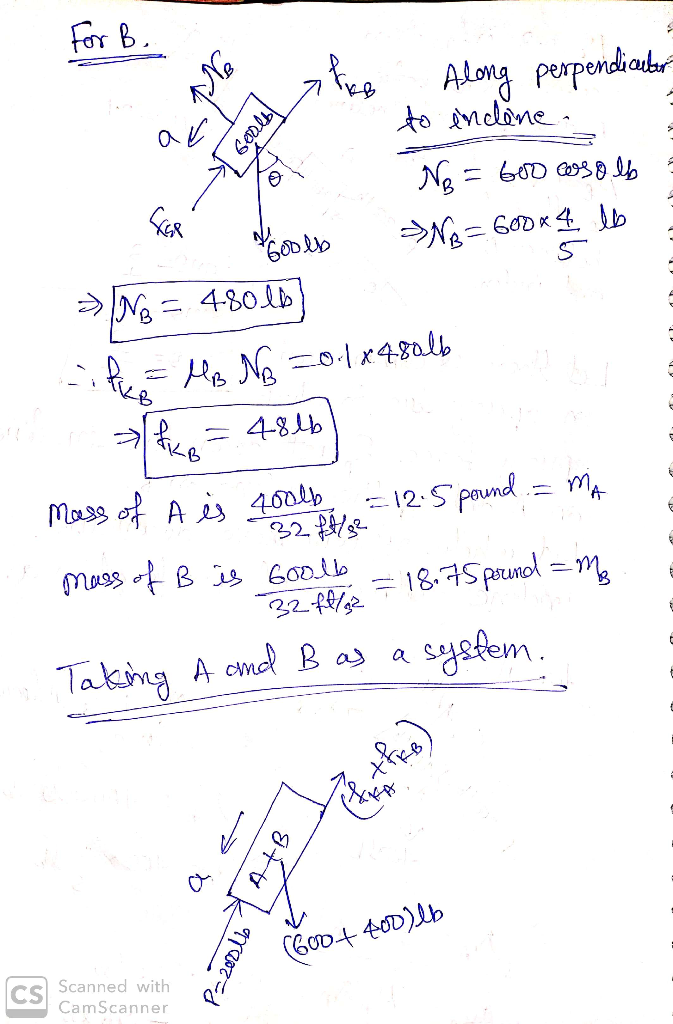 For B.
N_B
f_KB
a
600lb
θ
600lb
Along perpendicular
to incline.
N_B = 600 cosθ lb
⇒ N_B = 600 x 4/5 lb
⇒ N_B = 480 lb
∴ f_KB = μ_B N_B = 0.1 x 480lb
⇒ f_KB = 48 lb
Mass of A is 400lb / 32 ft/s² = 12.5 pound = m_A
Mass of B is 600lb / 32 ft/s² = 18.75 pound = m_B
Taking A and B as a system.
(f_KA + f_KB)
a
A+B
P=200lb
(600+400)lb
CS Scanned with
CamScanner